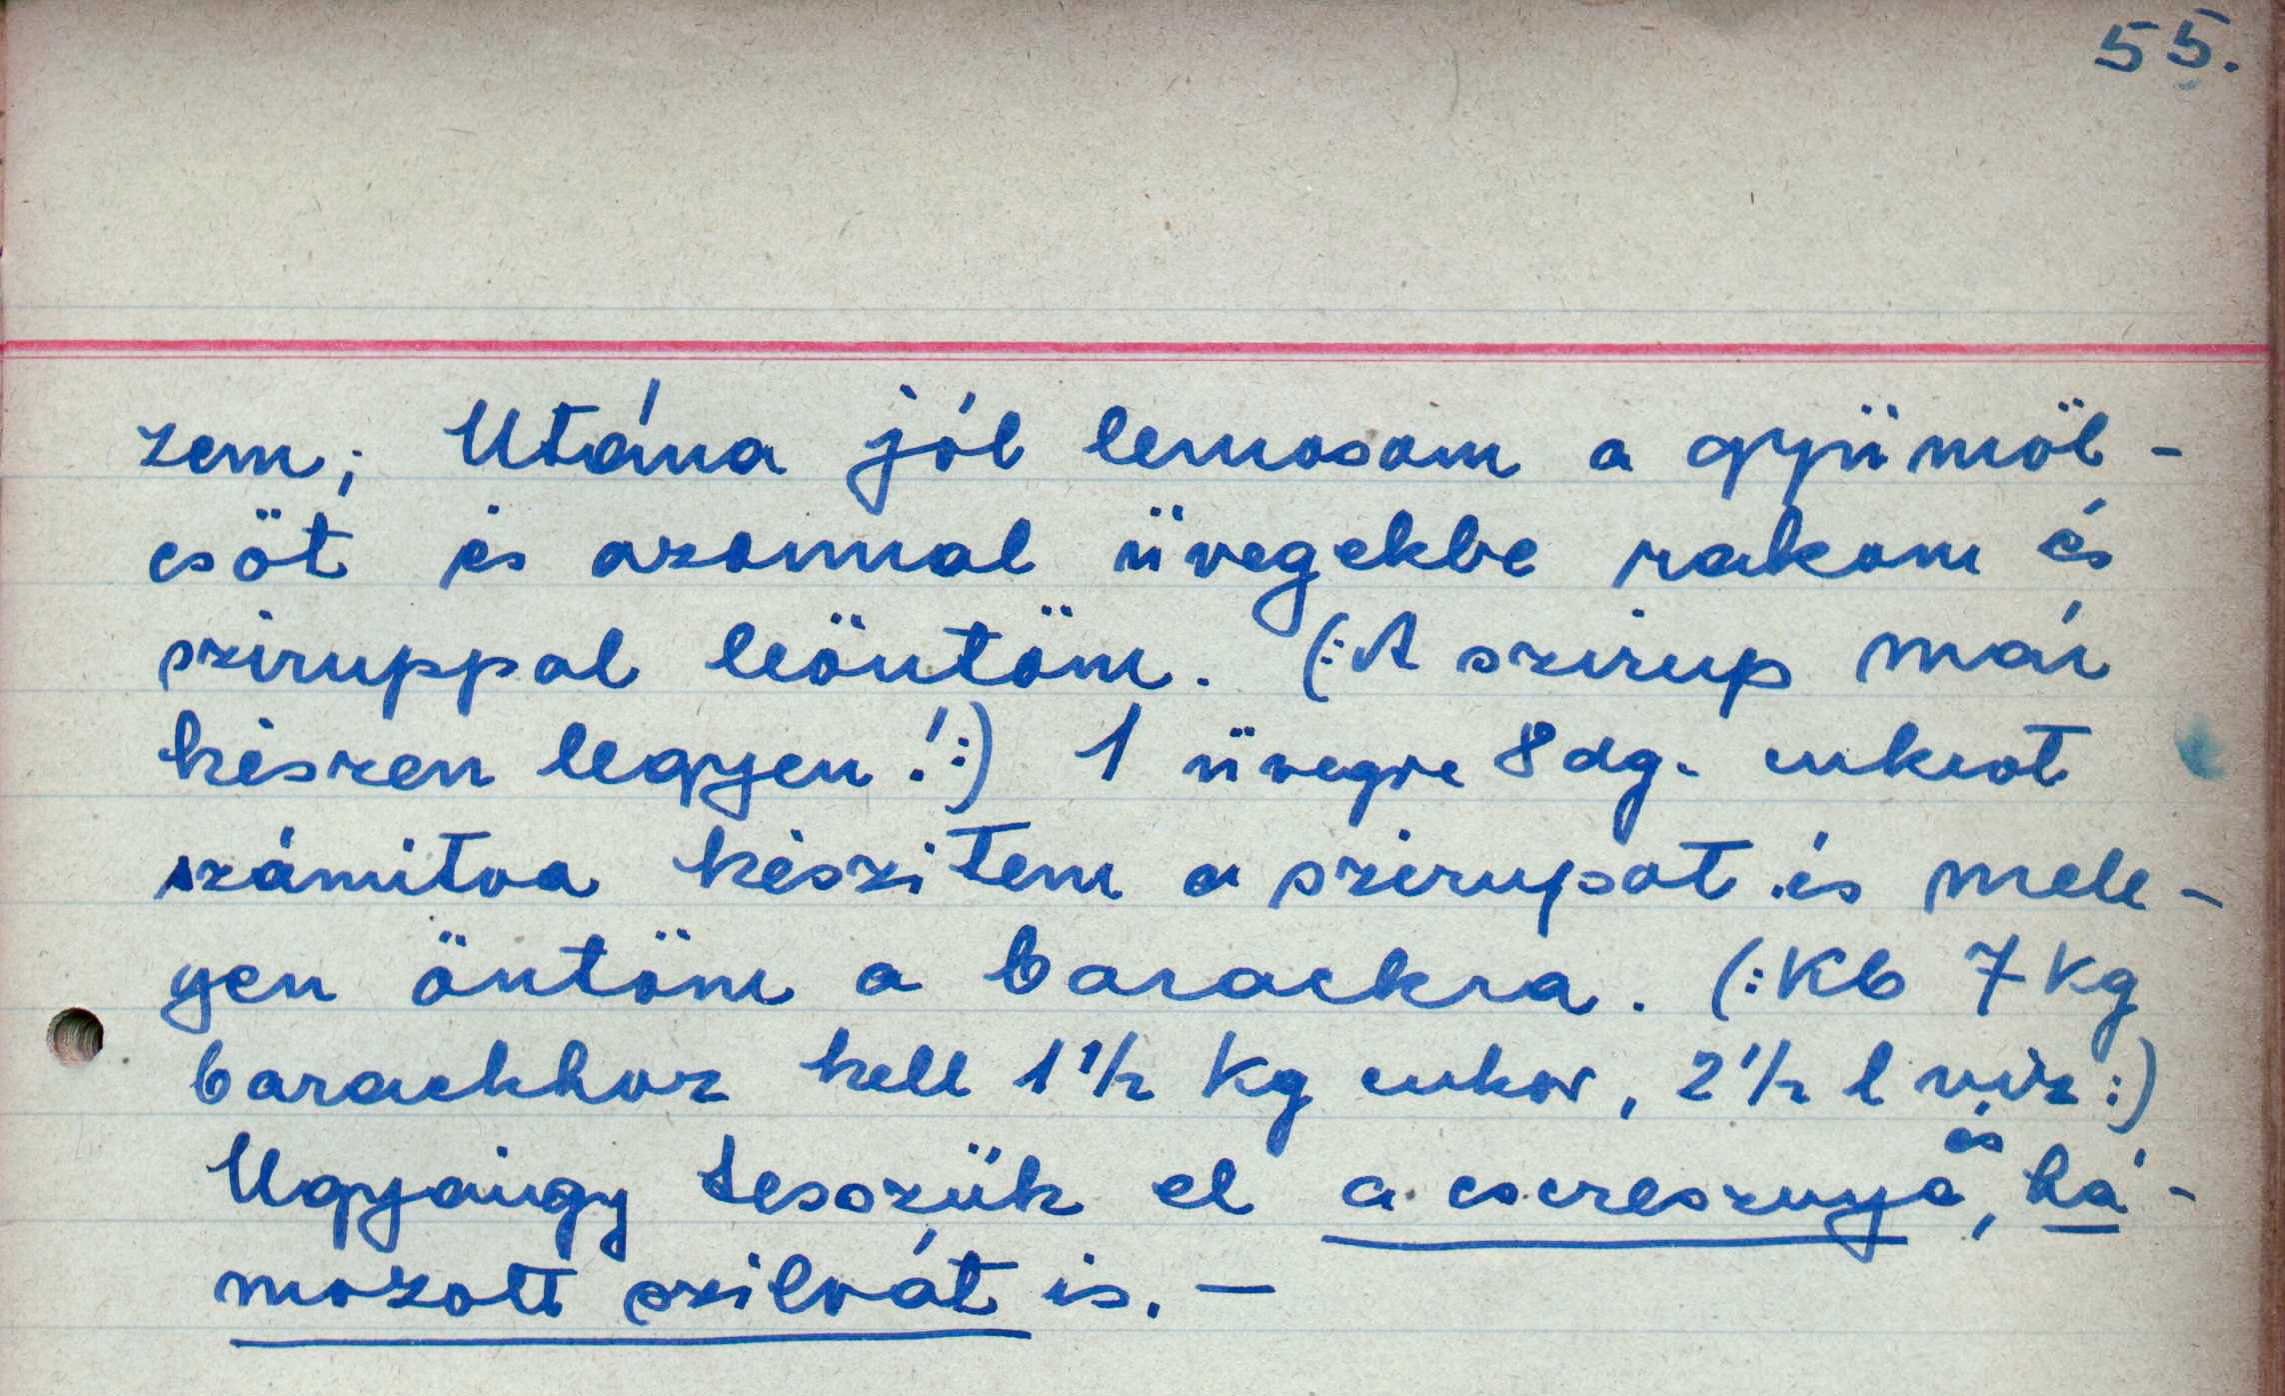 55.
zem; Utána jól lemosom a gyümöl-
csöt és azonnal üvegekbe rakom és
sziruppal leöntöm. (:A szirup már
készen legyen!:) 1 üvegre 8 dg. cukrot
számitva készitem a szirupot és mele-
gen öntöm a barackra. (:Kb 7 kg
barackhoz kell 1 1/2 kg cukor, 2 1/2 l viz:)
és
Ugyanigy tesszük el a cseresznye, há-
mozott szilvát is. —